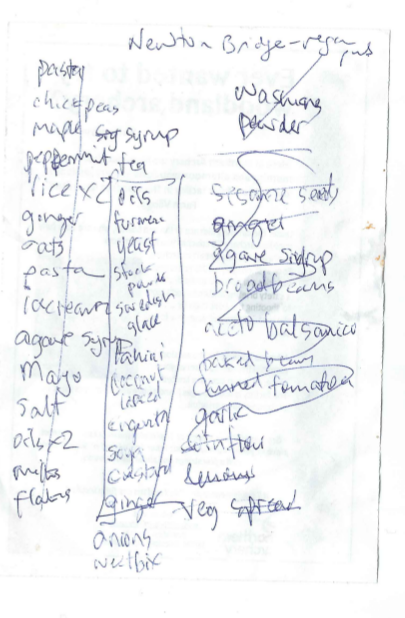 Newton Bridge - vegan pub
pasta
chickpeas
maple syrup
peppermint tea
rice x2
ginger
oats
pasta
icecream
agave syrup
Mayo
Salt
oils x2
flakes
oils
yeast
stock
powder
swedish
glace
tahini
coconut
soya
custard
ginger
onions
weetbix
washing
powder
sesame seeds
ginger
agave syrup
broad beans
aceto balsamico
baked beans
tinned tomatoes
garlic
lemons
veg spread